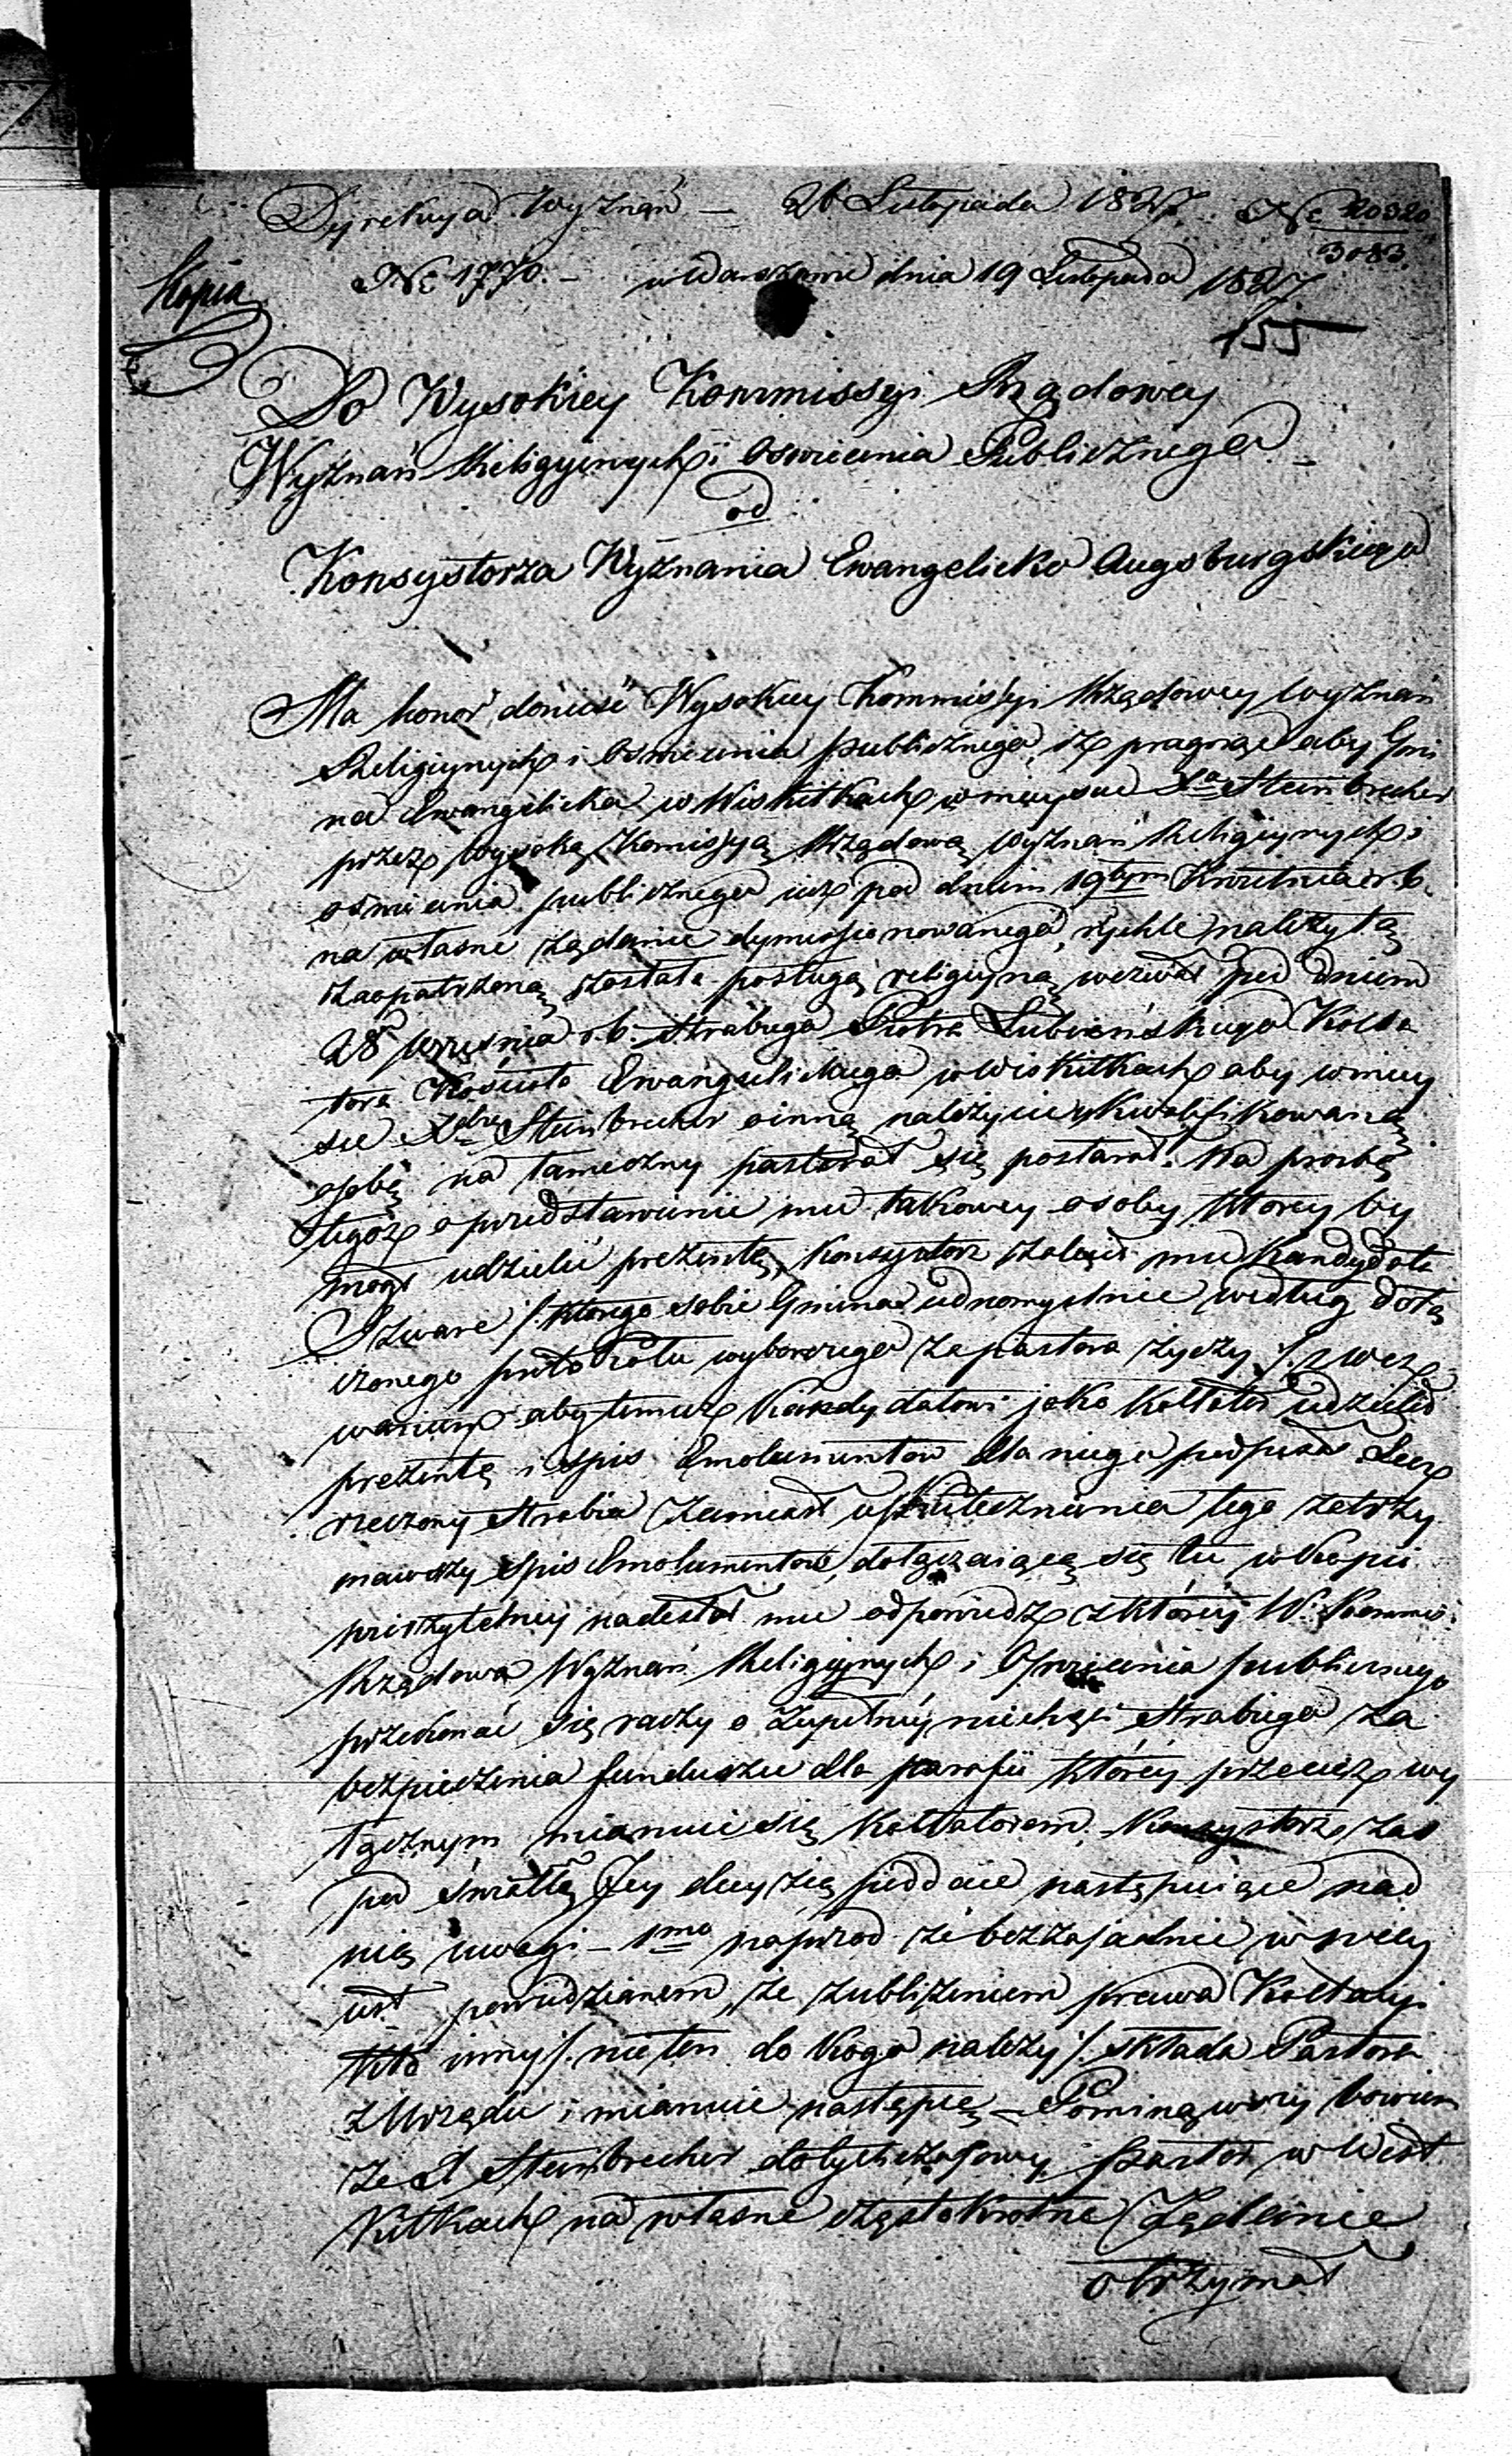 Dyrekcya Wyznań — 26 Listopada 1827. No 20920
3083.
No 1770. — w Warszawie dnia 19 Listopada 1827
Kopia
155
Do Wysokiey Kommissyi Rządowey
Wyznań Religiynych i Oswiecenia Publicznego —
od
Konsystorza Wyznania Ewangelicko Augsburgskiego
Ma honor donieść Wysokiey Kommissyi Rządowey Wyznań
Religiynych i Oswiecenia publicznego, iż pragnąc aby Gmi
na Ewangelicka w Wiskitkach w mieysce Xa Steinbrecher
przez Wysoką Komissyą Rządową Wyznań Religiynych i
oswiecenia publicznego iuż pod dniem 19tym Kwietnia r. b.
na własne żądanie dymissionowanego, rychle należytą
zaopatrzoną została posługą religiyną, wezwał pod dniem
28 Września r. b. Hrabiego Piotra Lubieńskiego Kolla
tora Kościoła Ewangelickiego w Wiskitkach aby w miey
sce Steinbrecher o inną należycie ukwalifikowaną
osobę na tameczny pastorat się postarał. Na prośbę
tegoż o przedstawienie mu takowey osoby którey by
mógł udzielić prezentę, Konsystorz zalecił mu Kandydata
/: którego sobie Gmina iednomyślnie według dołą
czonego protokółu wyborowego za pastora życzy :/ z wez
waniem aby temuż Kandydatowi jako Kollator udzielił
prezentę i spis Emolumentów dla niego podpisał. Lecz
rzeczony Hrabia zamiast uskutecznienia tego zatrzy
mawszy spis Emolumentów, dołączaiącą się tu w kopii
przesłał mu odpowiedź z któréj W. Kommis.
Rządowa Wyznań Religiynych i Oswiecenia publicznego
przekonać się raczy o zupełnéj niechęci Hrabiego za
bezpieczenia funduszu dla parafii którey przecież wy
łącznym mianuie się Kollatorem. Konsystorz zaś
pod światłą Jey decyzią poddaie następuiące nad
nią uwagi — 1mo naprzód że bezzasadnie w niey
iest powiedzianem, że z ubliżeniem prawa Kollacyi
kto inny /: nie ten do kogo należy :/ składa Pastora
z Urzędu i mianuie następcę — Pominąwszy bowiem
że X Steinbrecher dotychczasowy Pastor w Wis
kitkach na własne częstokrotne żądanie
otrzymał